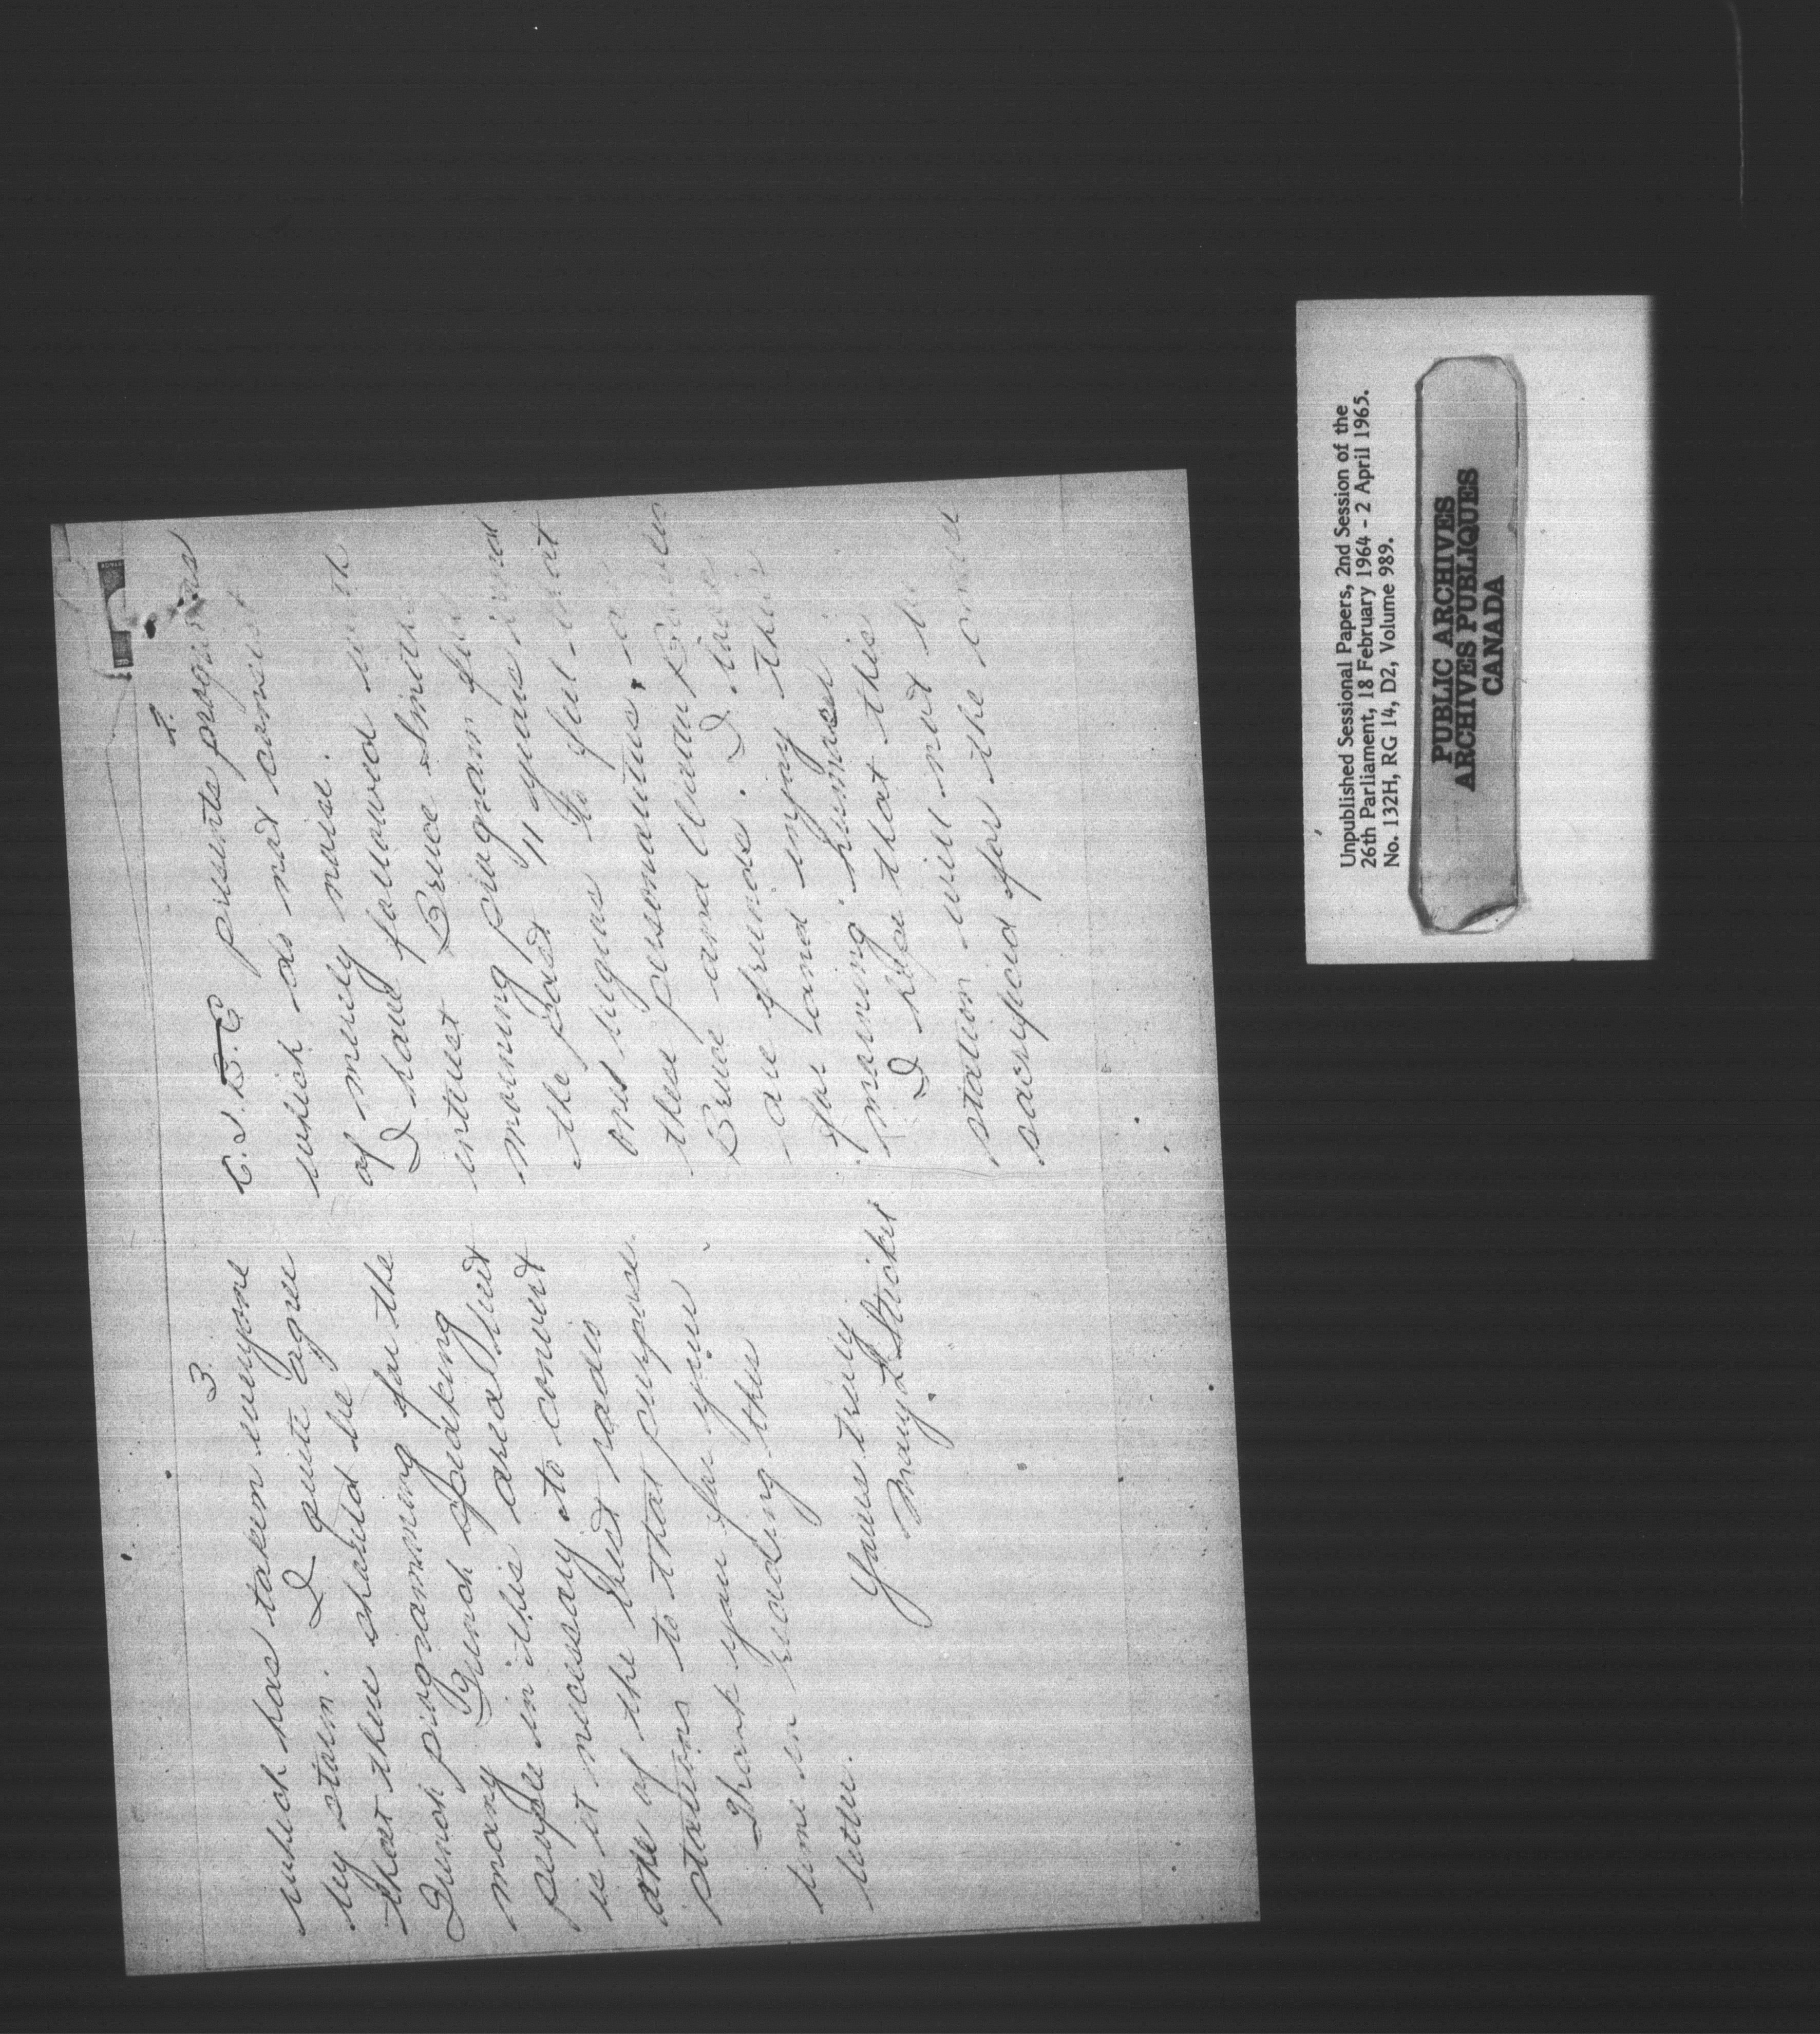 2.
C.J.B.C presents programs
which do not consist
of merely noise.
I have followed with
interest Bruce Smith
morning program for
the past 11 years and
one begins to feel that
these personalities, a
Bruce and Wiolau
are friends. I live
for and enjoy their
morning humour.
I hope that this
station will not be
sacrificed for the one
3.
which has taken everyone
by storm. I quite agree
that there should be
French programming for the
many French speaking
people in this area but
is it necessary to convert
one of the best radio
stations to that purpose.
Thank you for your
time in reading this
letter.
Yours truly
Mary L Stickel
Unpublished Sessional Papers, 2nd Session of the
26th Parliament, 18 February 1964 - 2 April 1965.
No. 132H, RG 14, D2, Volume 989.
PUBLIC ARCHIVES
ARCHIVES PUBLIQUES
CANADA